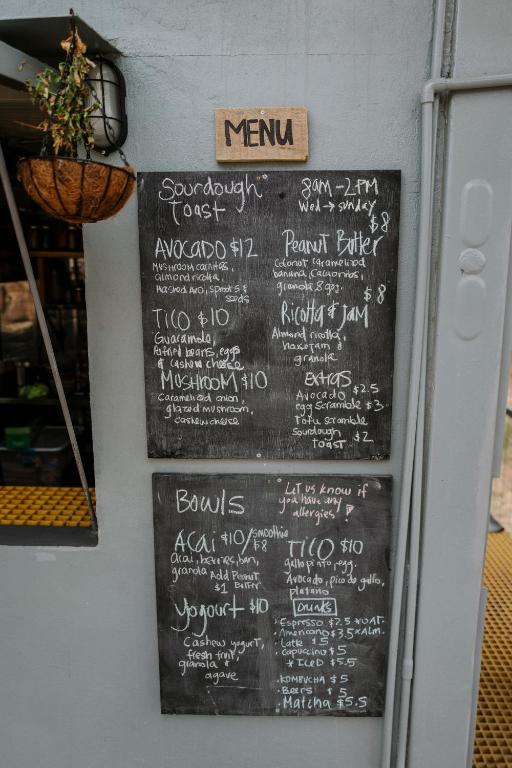 MENU
Sourdough
Toast
8am - 2PM
Wed → Sunday
AVOCADO $12
Mushroom carnitas,
almond ricotta,
Mashed Avo, sprouts &
seeds
TICO $10
Guacamole,
Refried beans, eggs
& cashew cheese
MUSHROOM $10
Caramelized onion,
glazed mushroom,
cashew cheese
$8
Peanut Butter
Coconut caramelized
banana, cacao nibs,
granola &
$8
Ricotta & Jam
Almond ricotta,
house jam &
granola
EXTRAS
Avocado $2.5
egg scramble $3
Tofu scramble
sourdough
toast $2
BOWLS
Let us know if
you have any
allergies!
ACAI $10/smoothie
$8
acai, berries, ban,
granola Add Peanut
$1 Butter
Yogourt $10
Cashew yogurt,
fresh fruit,
granola &
agave
TICO $10
gallo pinto, egg,
Avocado, pico do gallo,
platano
Drinks
· Espresso $2.5 * OAT
· Americano $3.5 * Alm.
· Latte $5
· Capuccino $5
* ICED $5.5
· KOMBUCHA $5
· Beers $5
· Matcha $5.5